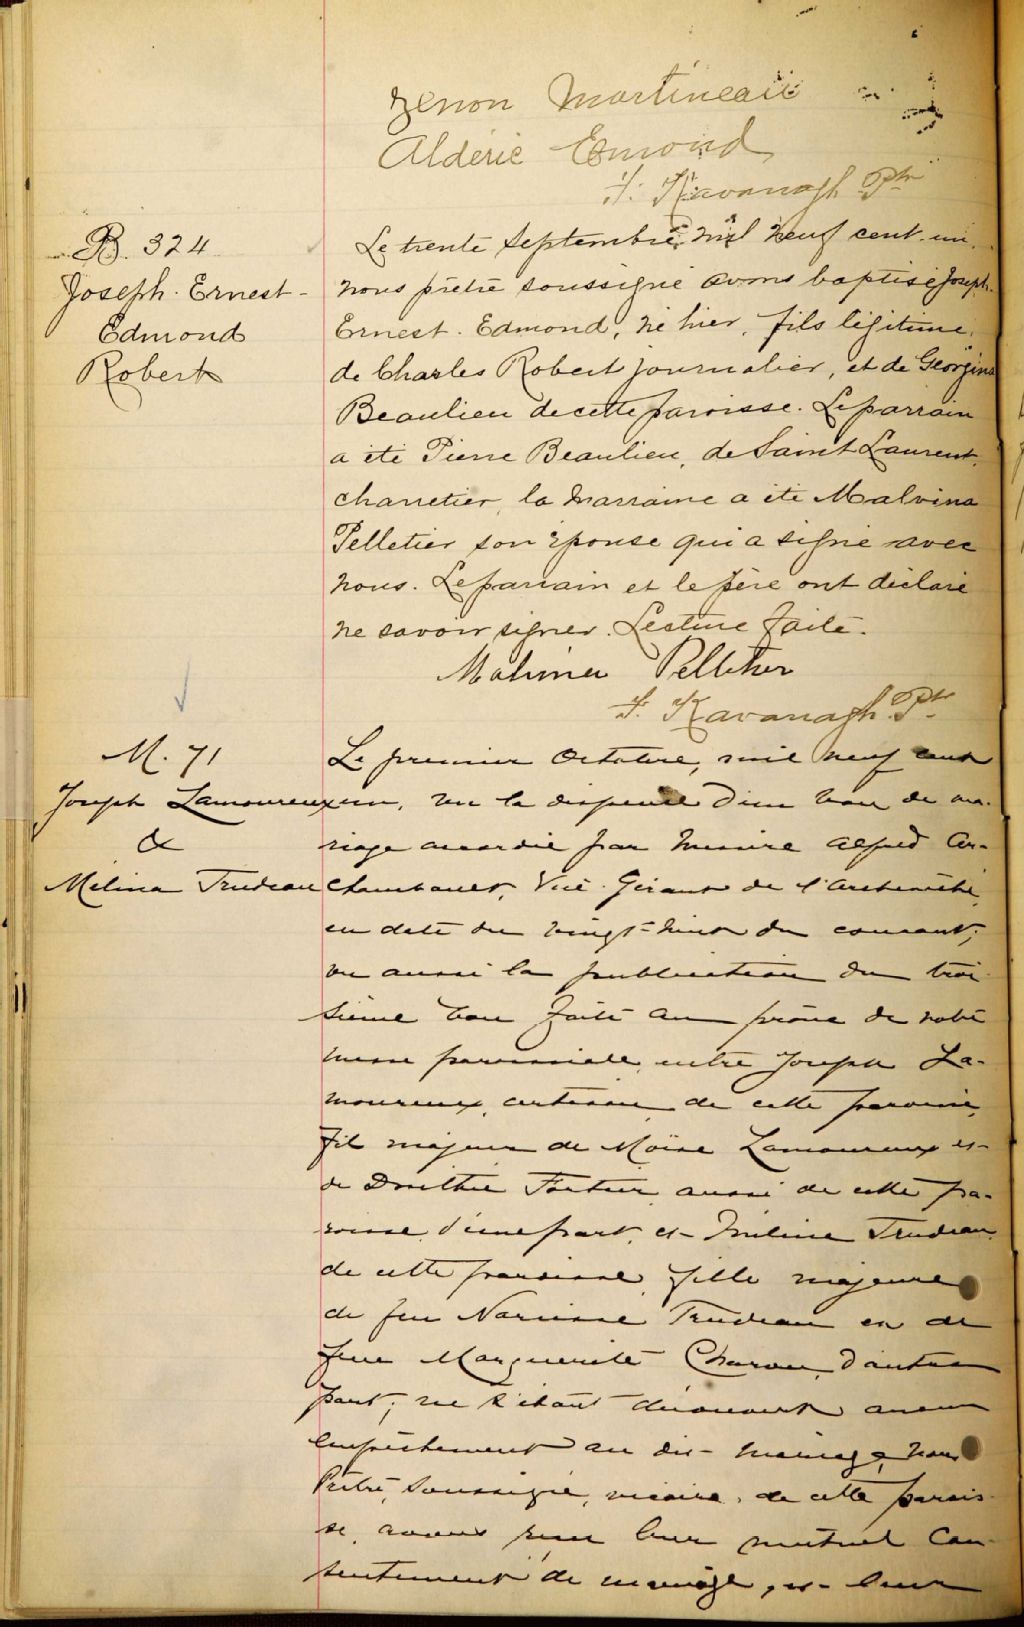 Zenon Martineau
Aldéric Emond
F. Kavanagh Ptr
B. 324
Joseph. Ernest-
Edmond
Robert
Le trente Septembre, mil neuf cent. un.
nous prêtre soussigné avons baptisé Joseph-
Ernest. Edmond, né hier, fils légitime
de Charles Robert journalier, et de Georgina
Beaulieu de cette paroisse. Le parrain
a été Pierre Beaulieu, de Saint Laurent,
charretier, la marraine a été Malvina
Pelletier son épouse qui a signé avec
nous. Le parrain et le père ont déclaré
ne savoir signer. Lecture faite.
Malvina Pelletier
F. Kavanagh. Ptr
M. 71
Joseph Lamoureux
&
Mélina Trudeau
Le premier Octobre, mil neuf cent
un, vu la dispense d'un ban de ma-
riage accordée par Messire Alfred Ar-
chambault, Vice. Gérant de l'Archevêché,
en date du vingt-huit du courant;
vu aussi la publication du troi-
sième ban faite au prône de notre
messe paroissiale, entre Joseph La-
moureux, artisan, de cette paroisse,
fils majeur de Moïse Lamoureux et
de Dorithée Fortier, aussi de cette pa-
roisse, d'une part, et Mélina Trudeau,
de cette paroisse, fille majeure
de feu Narcisse Trudeau et de
feue Marguerite Charon, d'autre
part; ne s'étant découvert aucun
empêchement au dit mariage, nous
Prêtre, Soussigné, vicaire, de cette parois-
se, avons reçu leur mutuel con-
sentement de mariage, et leur